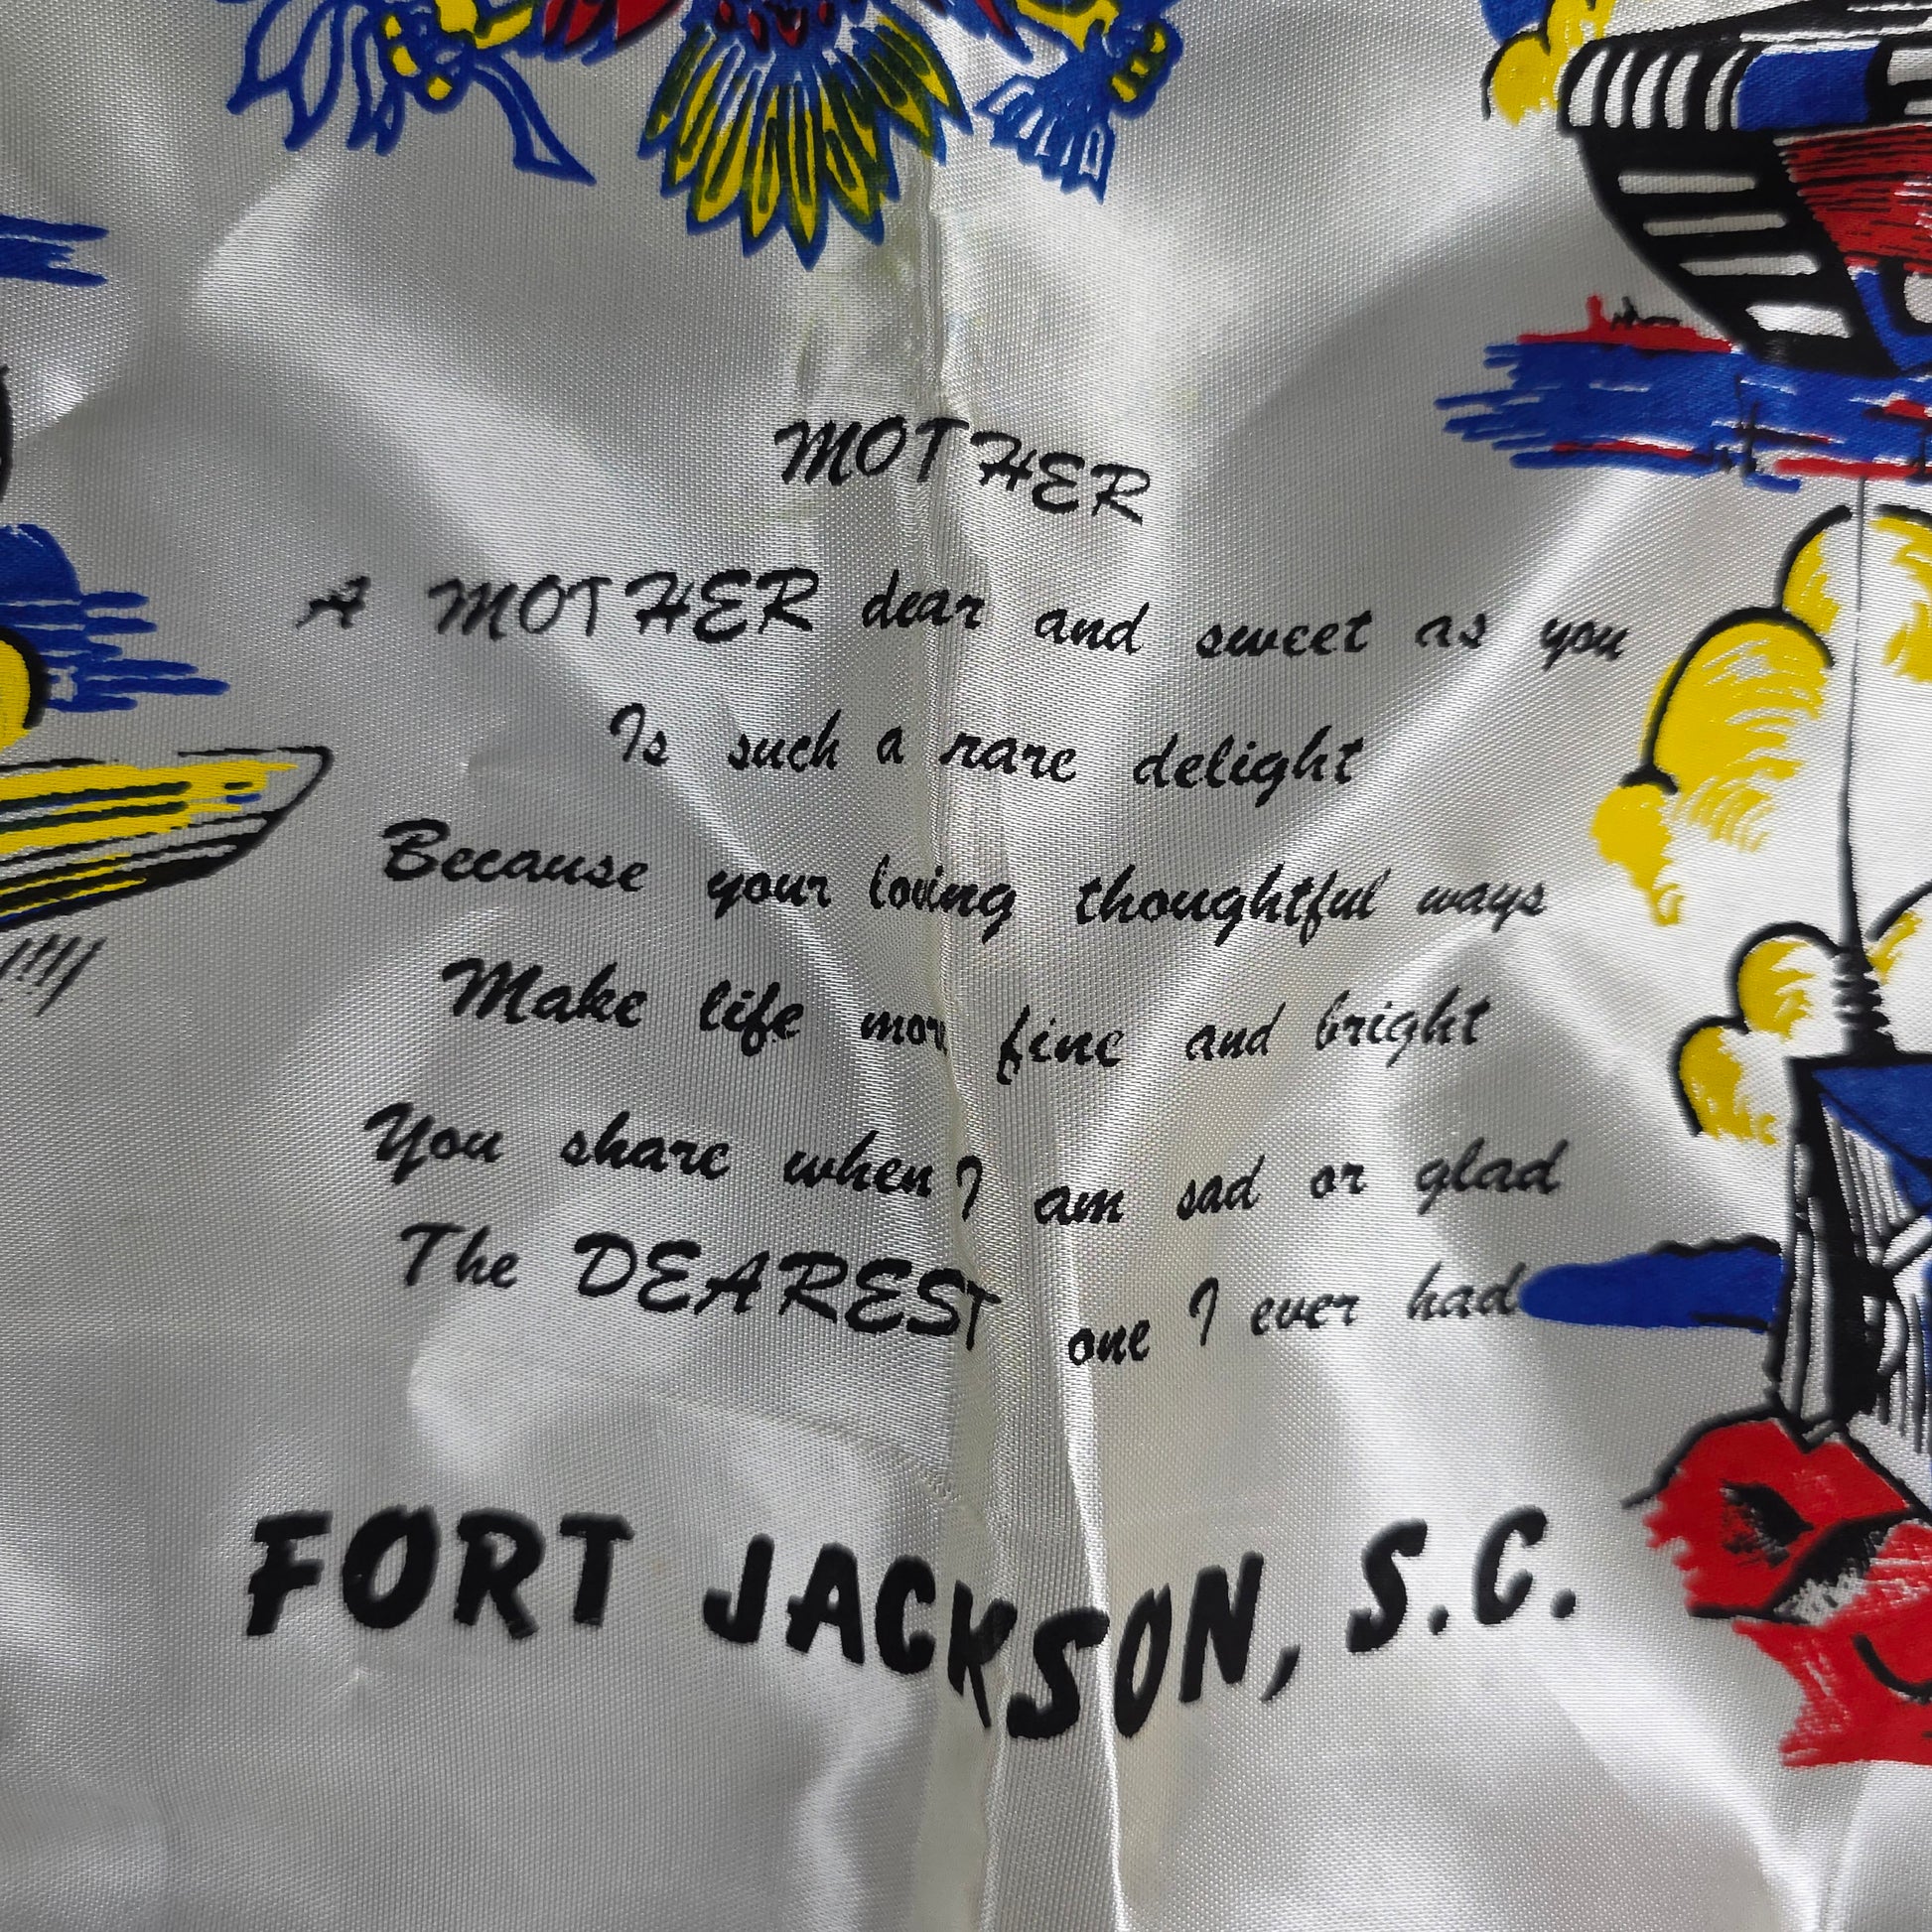 MOTHER
A MOTHER dear and sweet as you
Is such a rare delight
Because your loving thoughtful ways
Make life more fine and bright
You share when I am sad or glad
The DEAREST one I ever had
FORT JACKSON, S.C.